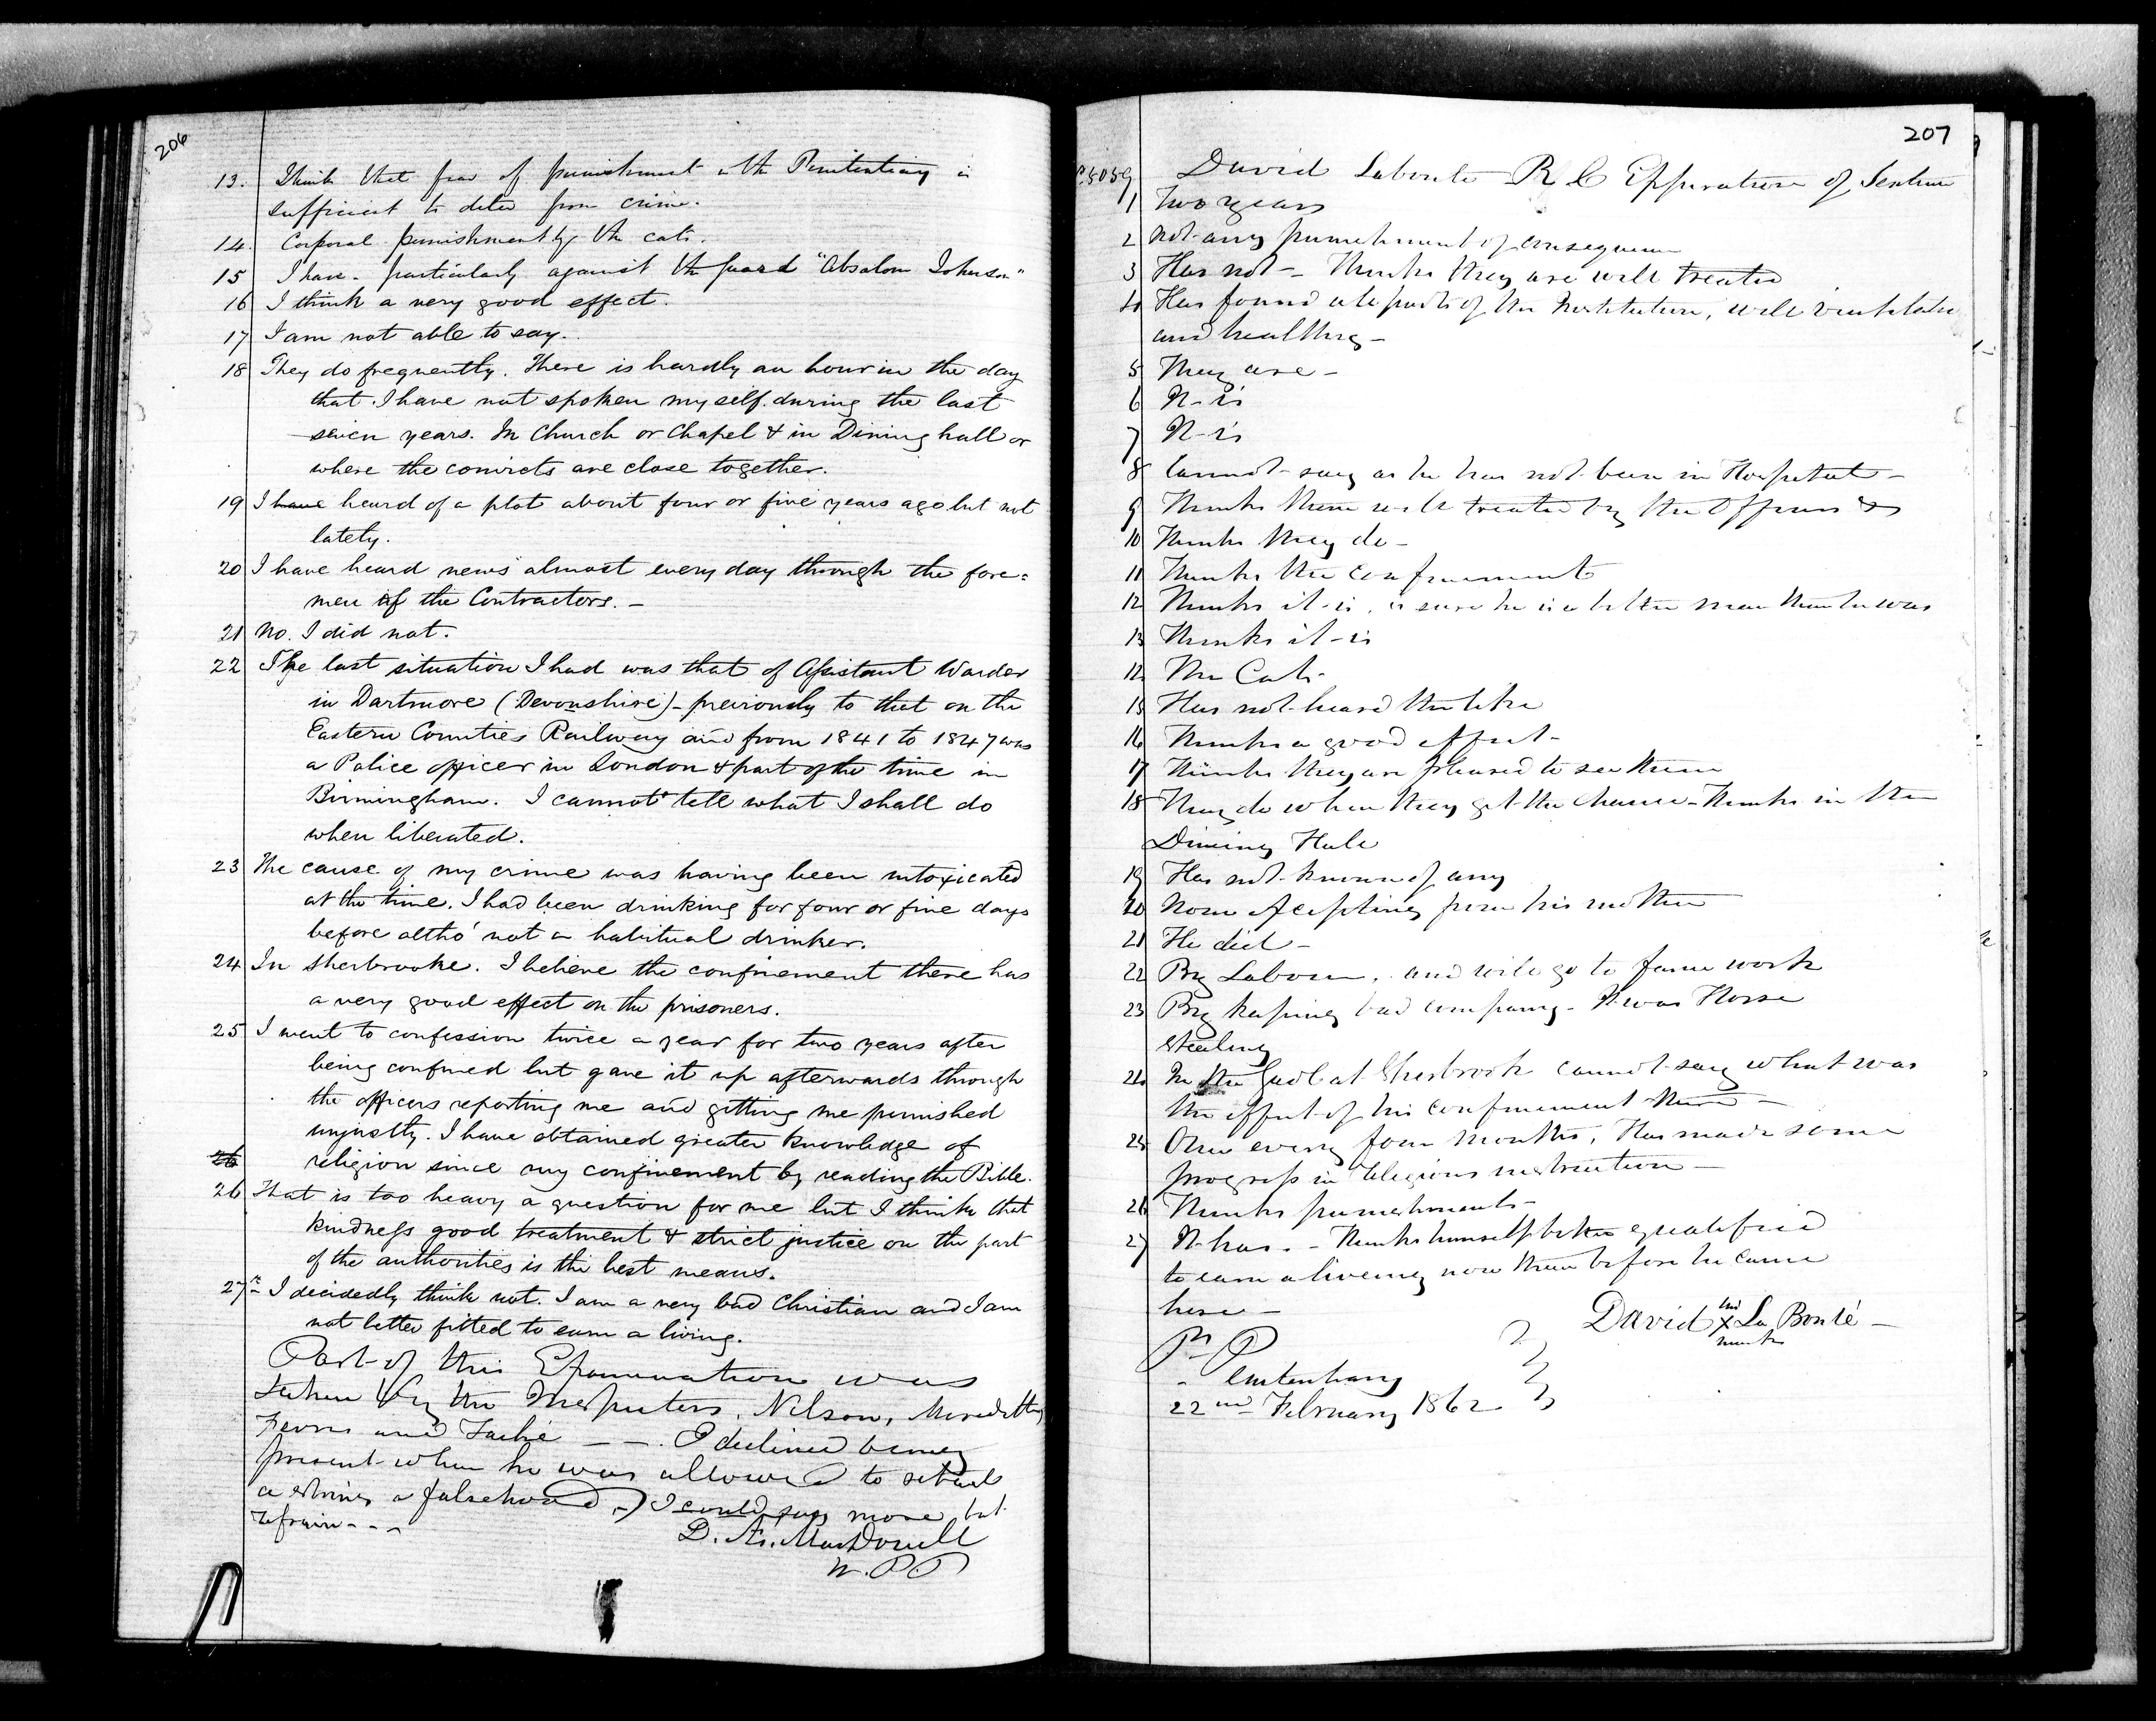 206
13. I think that fear of punishment in the Penitentiary is
sufficient to deter from crime.
14. Corporal punishment by the cats.
15 I have - particularly against the guard "Absalom Johnson"
16 I think a very good effect.
17 I am not able to say.
18 They do frequently. There is hardly an hour in the day
that I have not spoken myself during the last
seven years. In Church or Chapel & in Dining hall or
where the convicts are close together.
19 I have heard of a plot about four or five years ago but not
lately.
20 I have heard news almost every day through the fore=
men of the Contractors. -
21 No. I did not.
22 The last situation I had was that of Assistant Warder
in Dartmore (Devonshire) - previously to that on the
Eastern Counties Railway and from 1841 to 1847 was
a Police officer in London & part of the time in
Birmingham. I cannot tell what I shall do
when liberated.
23 The cause of my crime was having been intoxicated
at the time. I had been drinking for four or five days
before altho' not a habitual drinker.
24 In Sherbrooke. I believe the confinement there has
a very good effect on the prisoners.
25 I went to confession twice a year for two years after
being confined but gave it up afterwards through
the officers reporting me and getting me punished
unjustly. I have obtained greater knowledge of
26 religion since my confinement by reading the Bible.
26 That is too heavy a question for me but I think that
kindness good treatment & strict justice on the part
of the authorities is the best means.
27 - I decidedly think not. I am a very bad Christian and I am
not better fitted to earn a living.
Part of this Examination was
taken by the Inspectors, Nelson, Meredith,
Ferres and Taché — —. I declined being
present when he was allowed to
a falsehood -) I could say more but
refrain - - -
D. Æ. MacDonell
W. P P
207
5059 David Labonte R C Expiration of Sentence
1 Two years
2 Not any punishment of consequence
3 Has not - Thinks they are well treated
4 Has found all parts of the Institution, well ventilated
and healthy -
5 They are -
6 It is
7 It is
8 Cannot say as he has not been in Hospital -
9 Thinks them well treated by the Officers
10 Thinks they do -
11 Thinks the confinement
12 Thinks it is, is sure he is a better man than he was
13 Thinks it is
12 The Cats
15 Has not heard the like
16 Thinks a good effect -
17 Thinks they are pleased to see them
18 They do when they get the chance - Thinks in the
Dining Hall
19 Has not known of any
20 None excepting from his mother
21 He did -
22 By Labour, and will go to farm work
23 By keeping bad company - It was Horse
stealing
24 In the Gaol at Sherbrook cannot say what was
the effect of his confinement there -
25 Once every four months, Has made some
progress in religious instruction -
26 Thinks punishments -
27 It has. - Thinks himself better qualified
to earn a liveing now than before he came
here -
David his X La Bonté -
mark
P. P
Penitentiary
22nd February 1862